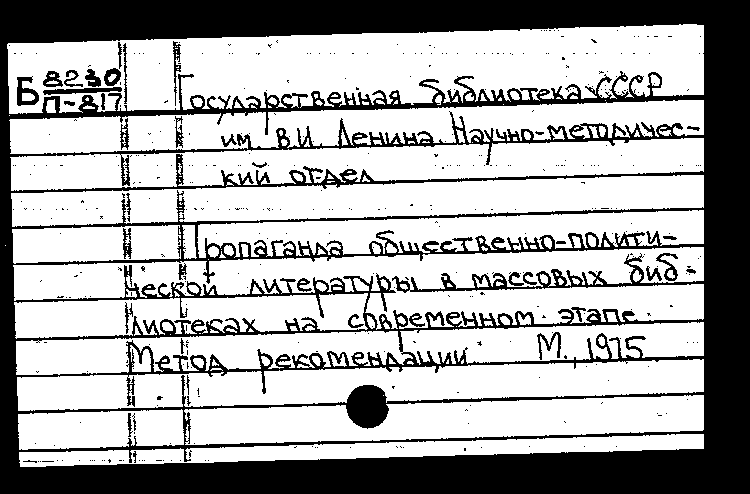 Б 8230
П-817
Государственная библиотека СССР
им. В.И. Ленина. Научно-методичес-
кий отдел
Пропаганда общественно-полити-
ческой литературы в массовых биб-
лиотеках на современном этапе.
Метод рекомендации. М., 1975